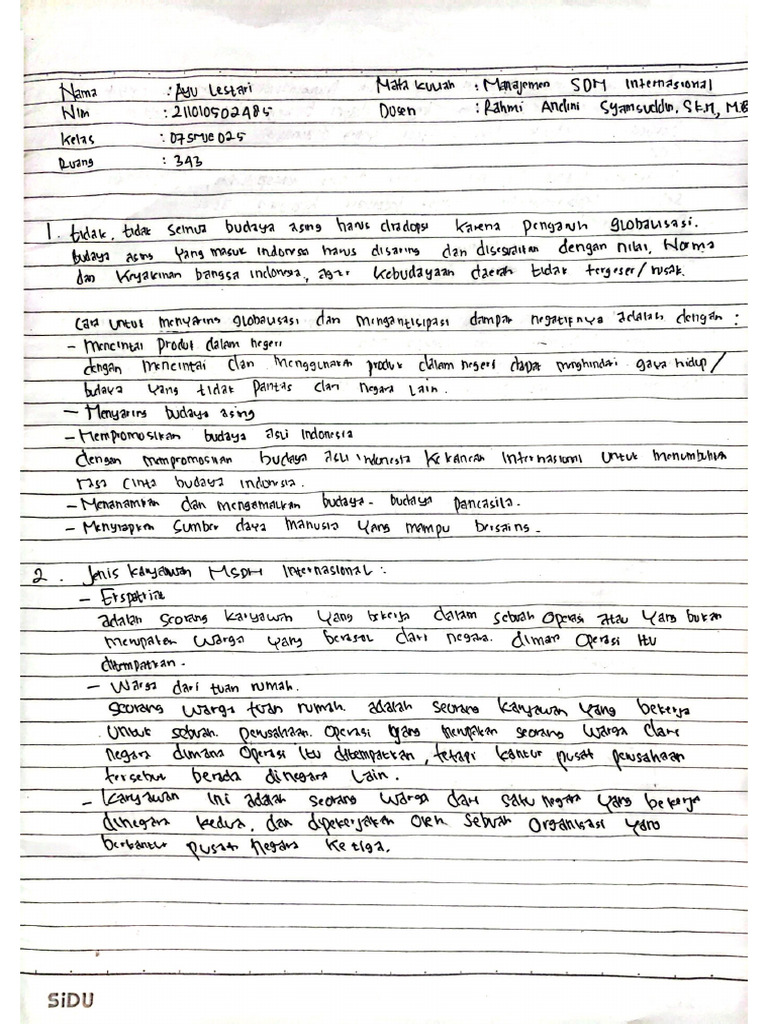 Nama : Ayu Lestari Mata kuliah : Manajemen SDM Internasional
Nim : 211010502485 Dosen : Rahmi Andini Syamsuddin, S.E.M, M.
Kelas : 07SMJE025
Ruang : 343
1. tidak, tidak semua budaya asing harus diadopsi karena pengaruh globalisasi.
budaya asing yang masuk indonesia harus disaring dan disesuaikan dengan nilai, Norma
dan keyakinan bangsa indonesia, agar kebudayaan daerah tidak tergeser/rusak.
Cara untuk menyaring globalisasi dan mengantisipasi dampak negatifnya adalah dengan :
- Mencintai produk dalam negeri
dengan mencintai dan menggunakan produk dalam negeri dapat menghindari gaya hidup/
budaya yang tidak pantas dari negara lain.
- Menyaring budaya asing
- Mempromosikan budaya asli indonesia
dengan mempromosikan budaya asli indonesia kekancah internasional untuk menumbuhkan
rasa cinta budaya indonesia.
- Menanamkan dan mengamalkan budaya-budaya pancasila.
- Menyiapkan sumber daya manusia yang mampu bersaing.
2. Jenis karyawan MSDM Internasional :
- Ekspatriat
adalah seorang karyawan yang bekerja dalam sebuah operasi atau yang bukan
merupakan warga yang berasal dari negara. dimana operasi itu
ditempatkan.
- Warga dari tuan rumah.
Seorang warga tuan rumah adalah seorang karyawan yang bekerja
untuk sebuah perusahaan operasi yang merupakan seorang warga dari
negara dimana operasi itu ditempatkan, tetapi kantor pusat perusahaan
tersebut berada dinegara lain.
- Karyawan ini adalah seorang warga dari satu negara yang bekerja
dinegara kedua, dan dipekerjakan oleh sebuah organisasi yang
berkantor pusat negara ketiga.
SiDU